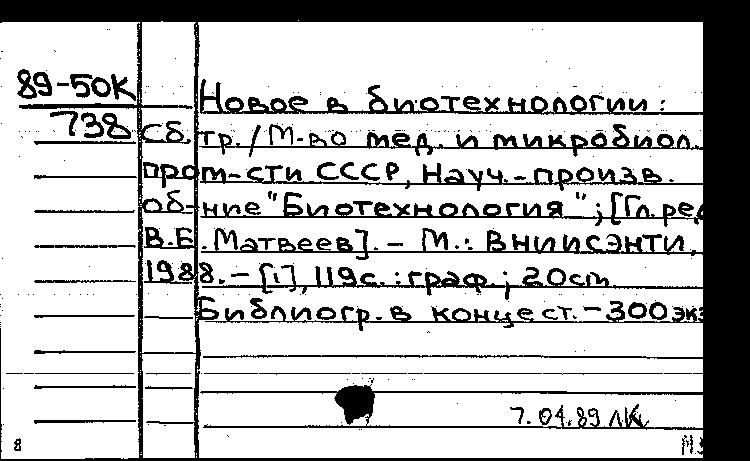 89-50К
738
Новое в биотехнологии:
Сб. тр./М-во мед. и микробиол.
пром-сти СССР, Науч.-произв.
об-ние "Биотехнология"; [Гл. ред.
В.Е. Матвеев]. - М.: ВНИИСЭНТИ,
1988. - [1], 119 с.: граф.; 20 cm
Библиогр. в конце ст. - 300 экз
7.04.89 ЛК
8